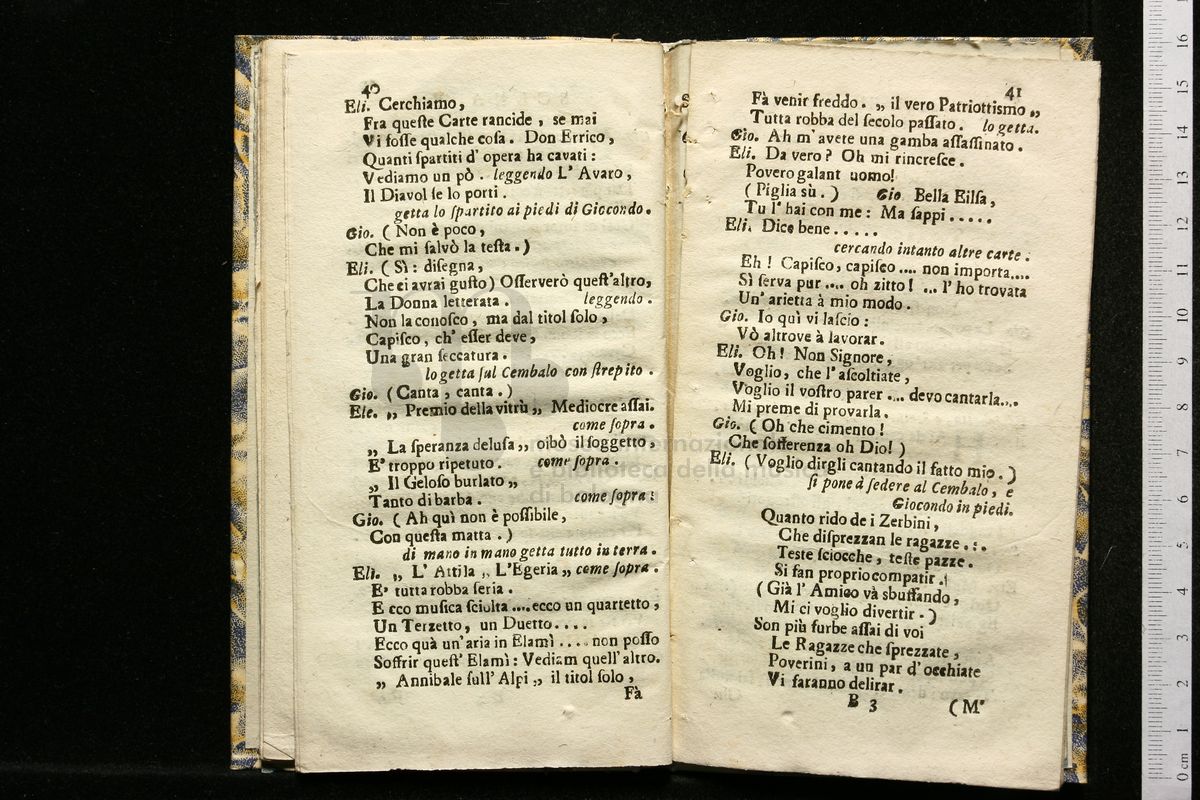 40
Eli. Cerchiamo,
Fra queſte Carte rancide, se mai
Vi foſſe qualche coſa. Don Errico,
Quanti ſpartiti d' opera ha cavati:
Vediamo un pò. leggendo L' Avaro,
Il Diavol ſe lo porti.
getta lo ſpartito ai piedi di Giocondo.
Gio. (Non è poco,
Che mi ſalvò la teſta.)
Eli. (Sì: diſegna,
Che ci avrai guſto) Oſſerverò queſt'altro,
La Donna letterata. leggendo.
Non la conoſco, ma dal titol ſolo,
Capiſco, ch' eſſer deve,
Una gran ſeccatura.
lo getta ſul Cembalo con ſtrepito.
Gio. (Canta, canta.)
Ele. „ Premio della vitrù „ Mediocre aſſai.
come ſopra.
„ La ſperanza deluſa „ oibò il ſoggetto,
E' troppo ripetuto. come ſopra.
„ Il Geloſo burlato „
Tanto di barba. come ſopra:
Gio. (Ah quì non è poſſibile,
Con queſta matta.)
di mano in mano getta tutto in terra.
Eli. „ L' Attila „ L'Egeria „ come ſopra.
E' tutta robba ſeria.
E cco muſica ſciolta .... ecco un quartetto,
Un Terzetto, un Duetto....
Ecco quà un'aria in Elamì .... non poſſo
Soffrir queſt' Elamì: Vediam quell'altro.
„ Annibale ſull' Alpi „ il titol ſolo,
Fà
41
Fà venir freddo. „ il vero Patriottismo „
Tutta robba del ſecolo paſſato. lo getta.
Gio. Ah m' avete una gamba aſſaſſinato.
Eli. Da vero? Oh mi rincreſce.
Povero galant uomo!
(Piglia sù.) Gio Bella Eilſa,
Tu l' hai con me: Ma ſappi.....
Eli. Dice bene.....
cercando intanto altre carte.
Eh! Capiſco, capiſco .... non importa....
Sì ſerva pur .... oh zitto! ... l' ho trovata
Un' arietta à mio modo.
Gio. Io quì vi laſcio:
Vò altrove à lavorar.
Eli. Oh! Non Signore,
Voglio, che l' aſcoltiate,
Voglio il voſtro parer .... devo cantarla....
Mi preme di provarla.
Gio. (Oh che cimento!
Che ſofferenza oh Dio!)
Eli. (Voglio dirgli cantando il fatto mio.)
ſi pone à ſedere al Cembalo, e
Giocondo in piedi.
Quanto rido de i Zerbini,
Che diſprezzan le ragazze.:.
Teste ſciocche, teſte pazze.
Si fan proprio compatir.
(Già l' Amico và sbuffando,
Mi ci voglio divertir.)
Son più furbe aſſai di voi
Le Ragazze che ſprezzate,
Poverini, a un par d' occhiate
Vi faranno delirar.
B 3 (M'